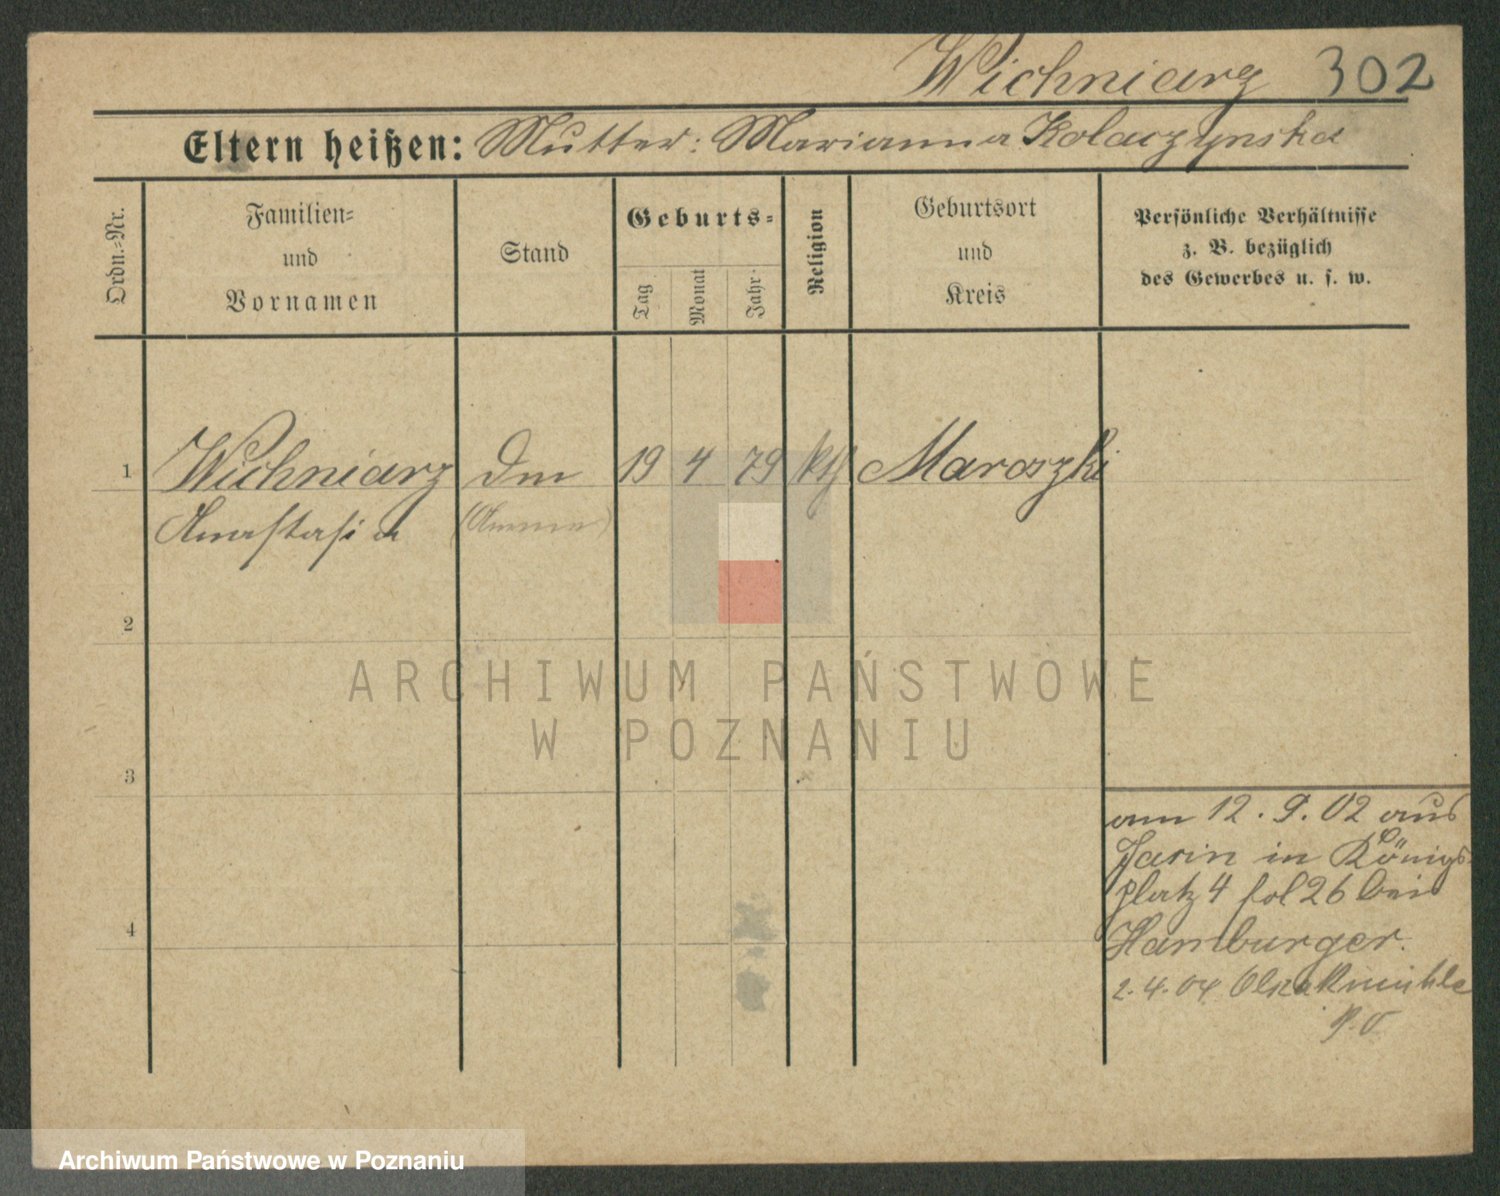 Wichniarz 302
Eltern heißen: Mutter: Marianna Kolaczynska
Ordn.-Nr.
Familien-
und
Vornamen
Stand
Geburts-
Tag
Monat
Jahr
Religion
Geburtsort
und
Kreis
Persönliche Verhältnisse
z. B. bezüglich
des Gewerbes u. s. w.
1 Wichniarz Dm 19 4 79 kth Maroszki
Anastasia (Amme)
2
ARCHIWUM PAŃSTWOWE
W POZNANIU
3
am 12. 9. 02 aus
in Königs-
platz 4 fol 26 bei
4
Hamburger.
2. 4. 04
Archiwum Państwowe w Poznaniu